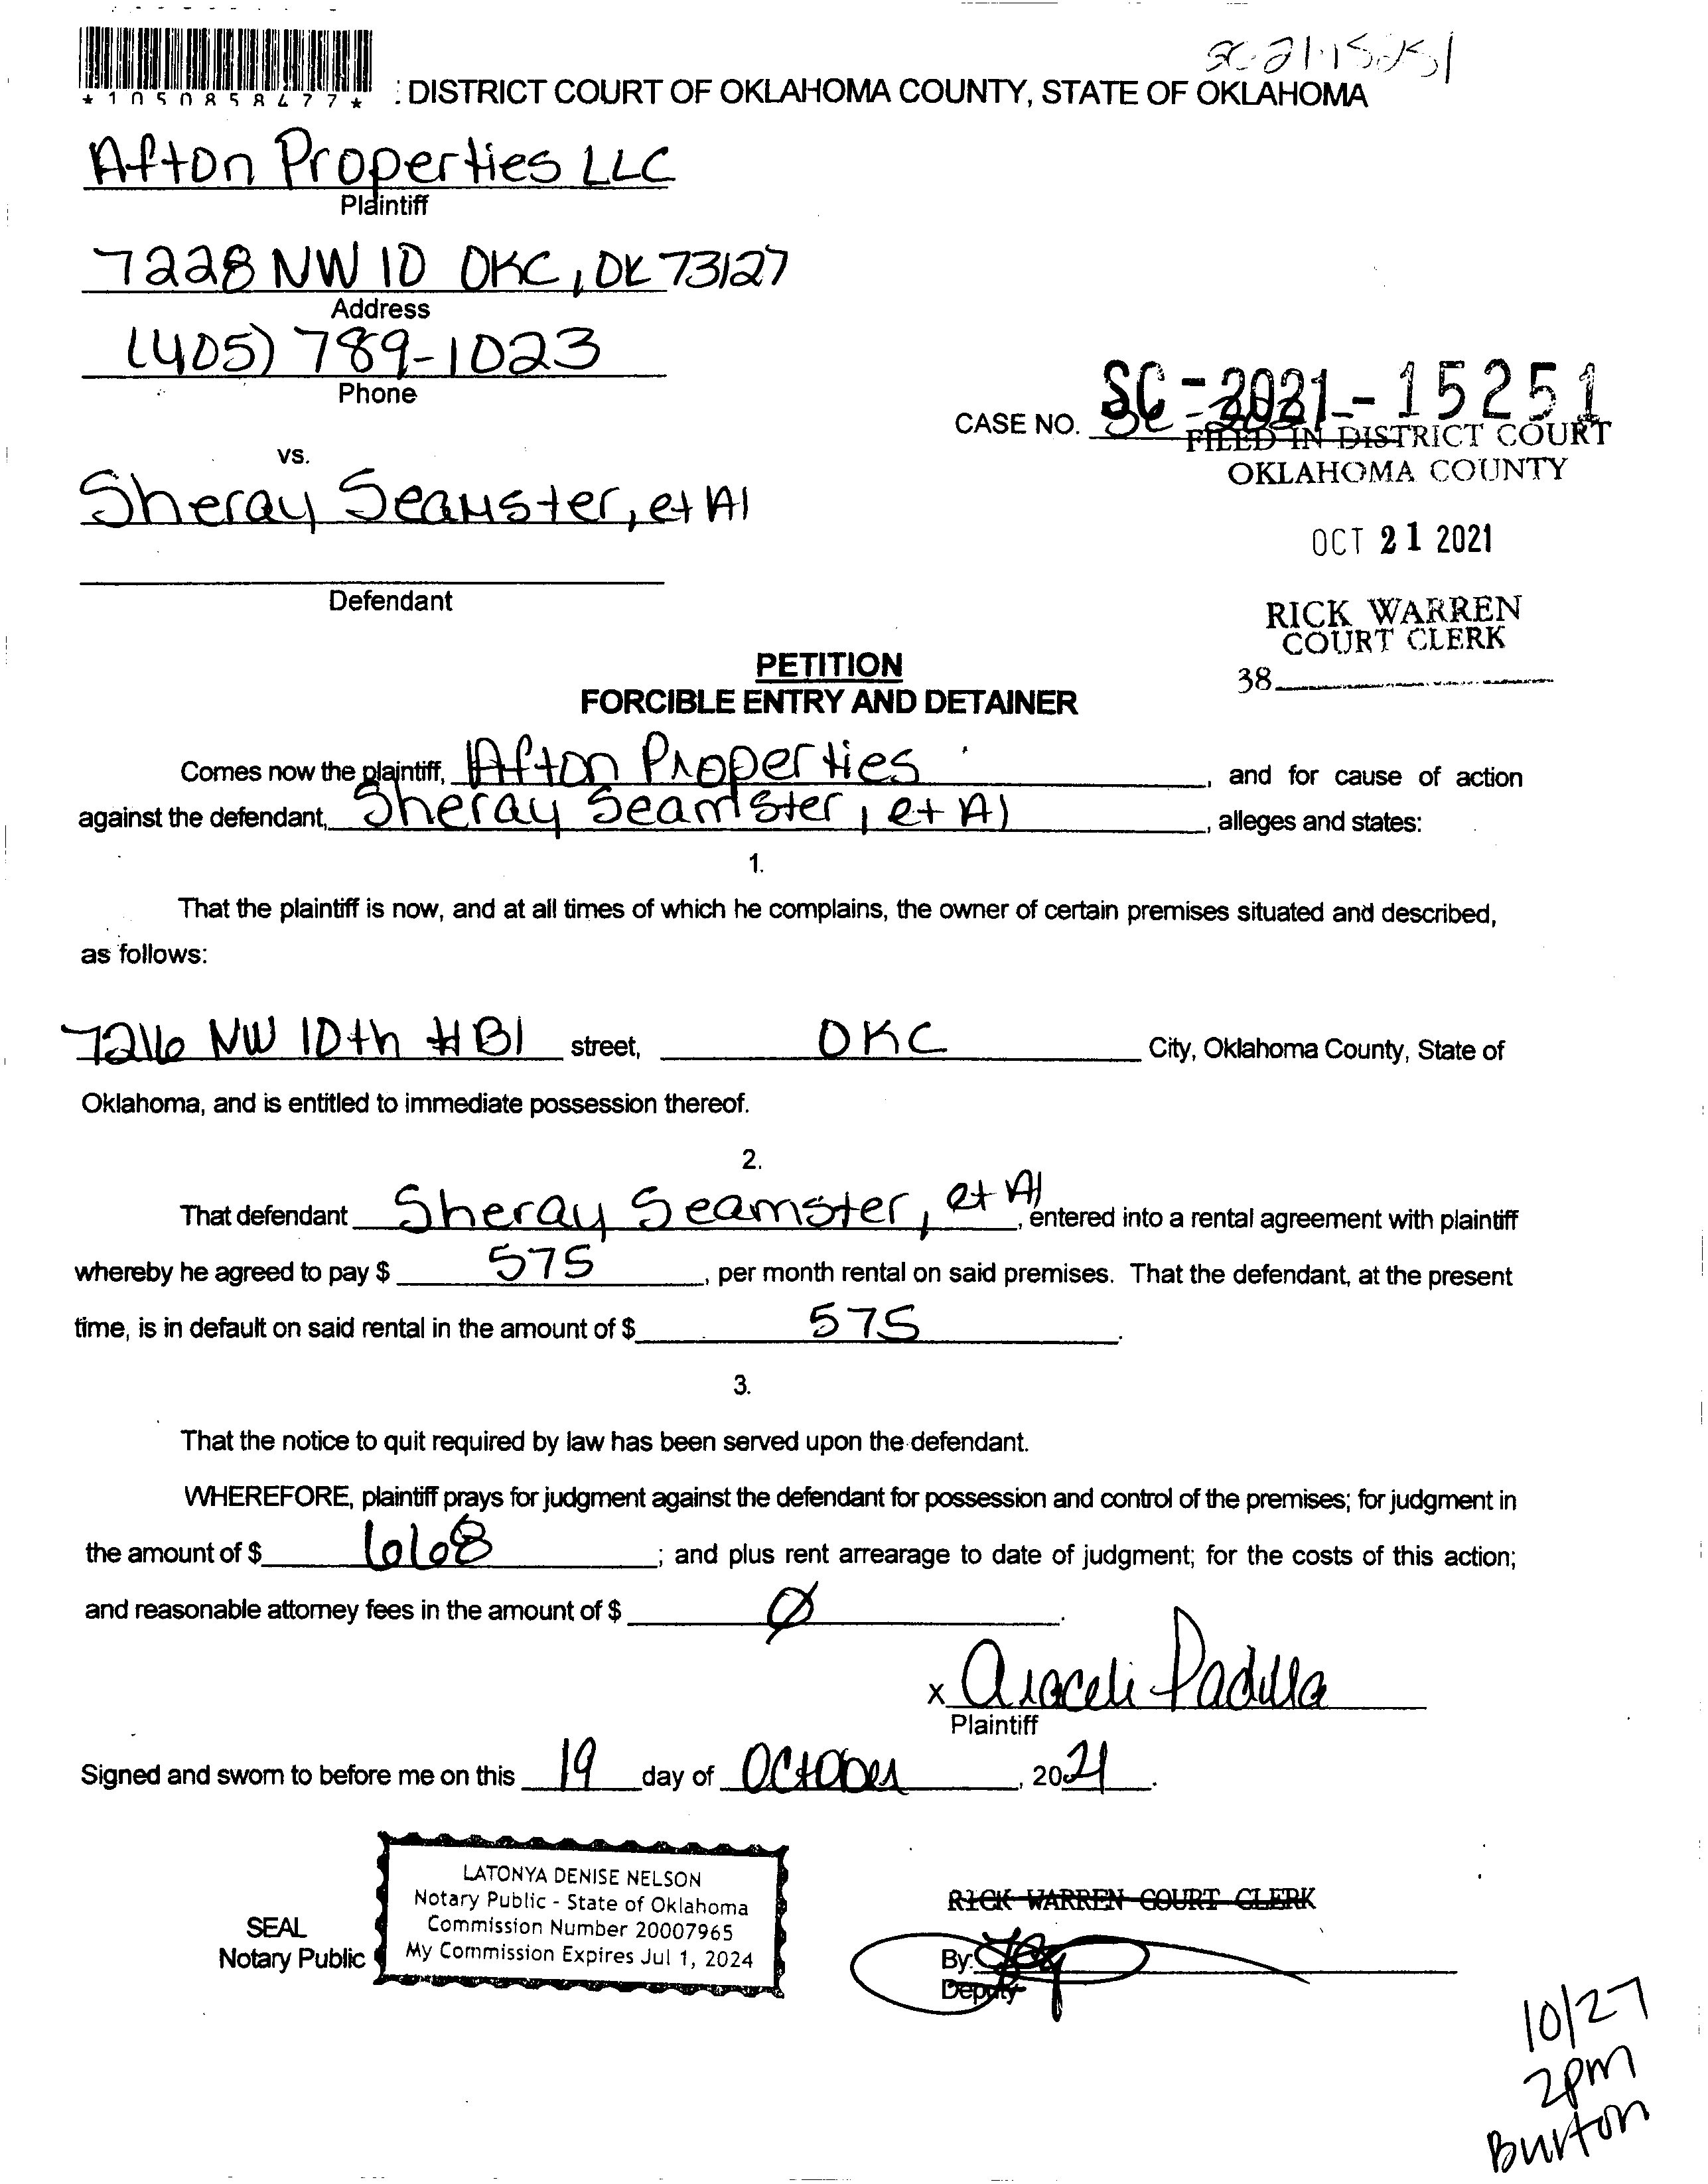 SC-21-15251
*1050858477*
: DISTRICT COURT OF OKLAHOMA COUNTY, STATE OF OKLAHOMA
Afton Properties LLC
Plaintiff
7228 NW 10 OKC, OK 73127
Address
(405) 789-1023
Phone
CASE NO. SC-2021-15251
FILED IN DISTRICT COURT
OKLAHOMA COUNTY
vs.
Sheray Seamster, et Al
OCT 21 2021
Defendant
RICK WARREN
COURT CLERK
38
PETITION
FORCIBLE ENTRY AND DETAINER
Comes now the plaintiff, Afton Properties, and for cause of action
against the defendant, Sheray Seamster, et Al, alleges and states:
1.
That the plaintiff is now, and at all times of which he complains, the owner of certain premises situated and described,
as follows:
7216 NW 10th #B1 street, OKC City, Oklahoma County, State of
Oklahoma, and is entitled to immediate possession thereof.
2.
That defendant Sheray Seamster, et Al, entered into a rental agreement with plaintiff
whereby he agreed to pay $ 575, per month rental on said premises. That the defendant, at the present
time, is in default on said rental in the amount of $ 575.
3.
That the notice to quit required by law has been served upon the defendant.
WHEREFORE, plaintiff prays for judgment against the defendant for possession and control of the premises; for judgment in
the amount of $ 668; and plus rent arrearage to date of judgment; for the costs of this action;
and reasonable attorney fees in the amount of $ Ø.
x Araceli Padilla
Plaintiff
Signed and sworn to before me on this 19 day of October, 2021.
LATONYA DENISE NELSON
Notary Public - State of Oklahoma
Commission Number 20007965
My Commission Expires Jul 1, 2024
SEAL
Notary Public
RICK WARREN COURT CLERK
By:
Deputy
10/27
2pm
Burton